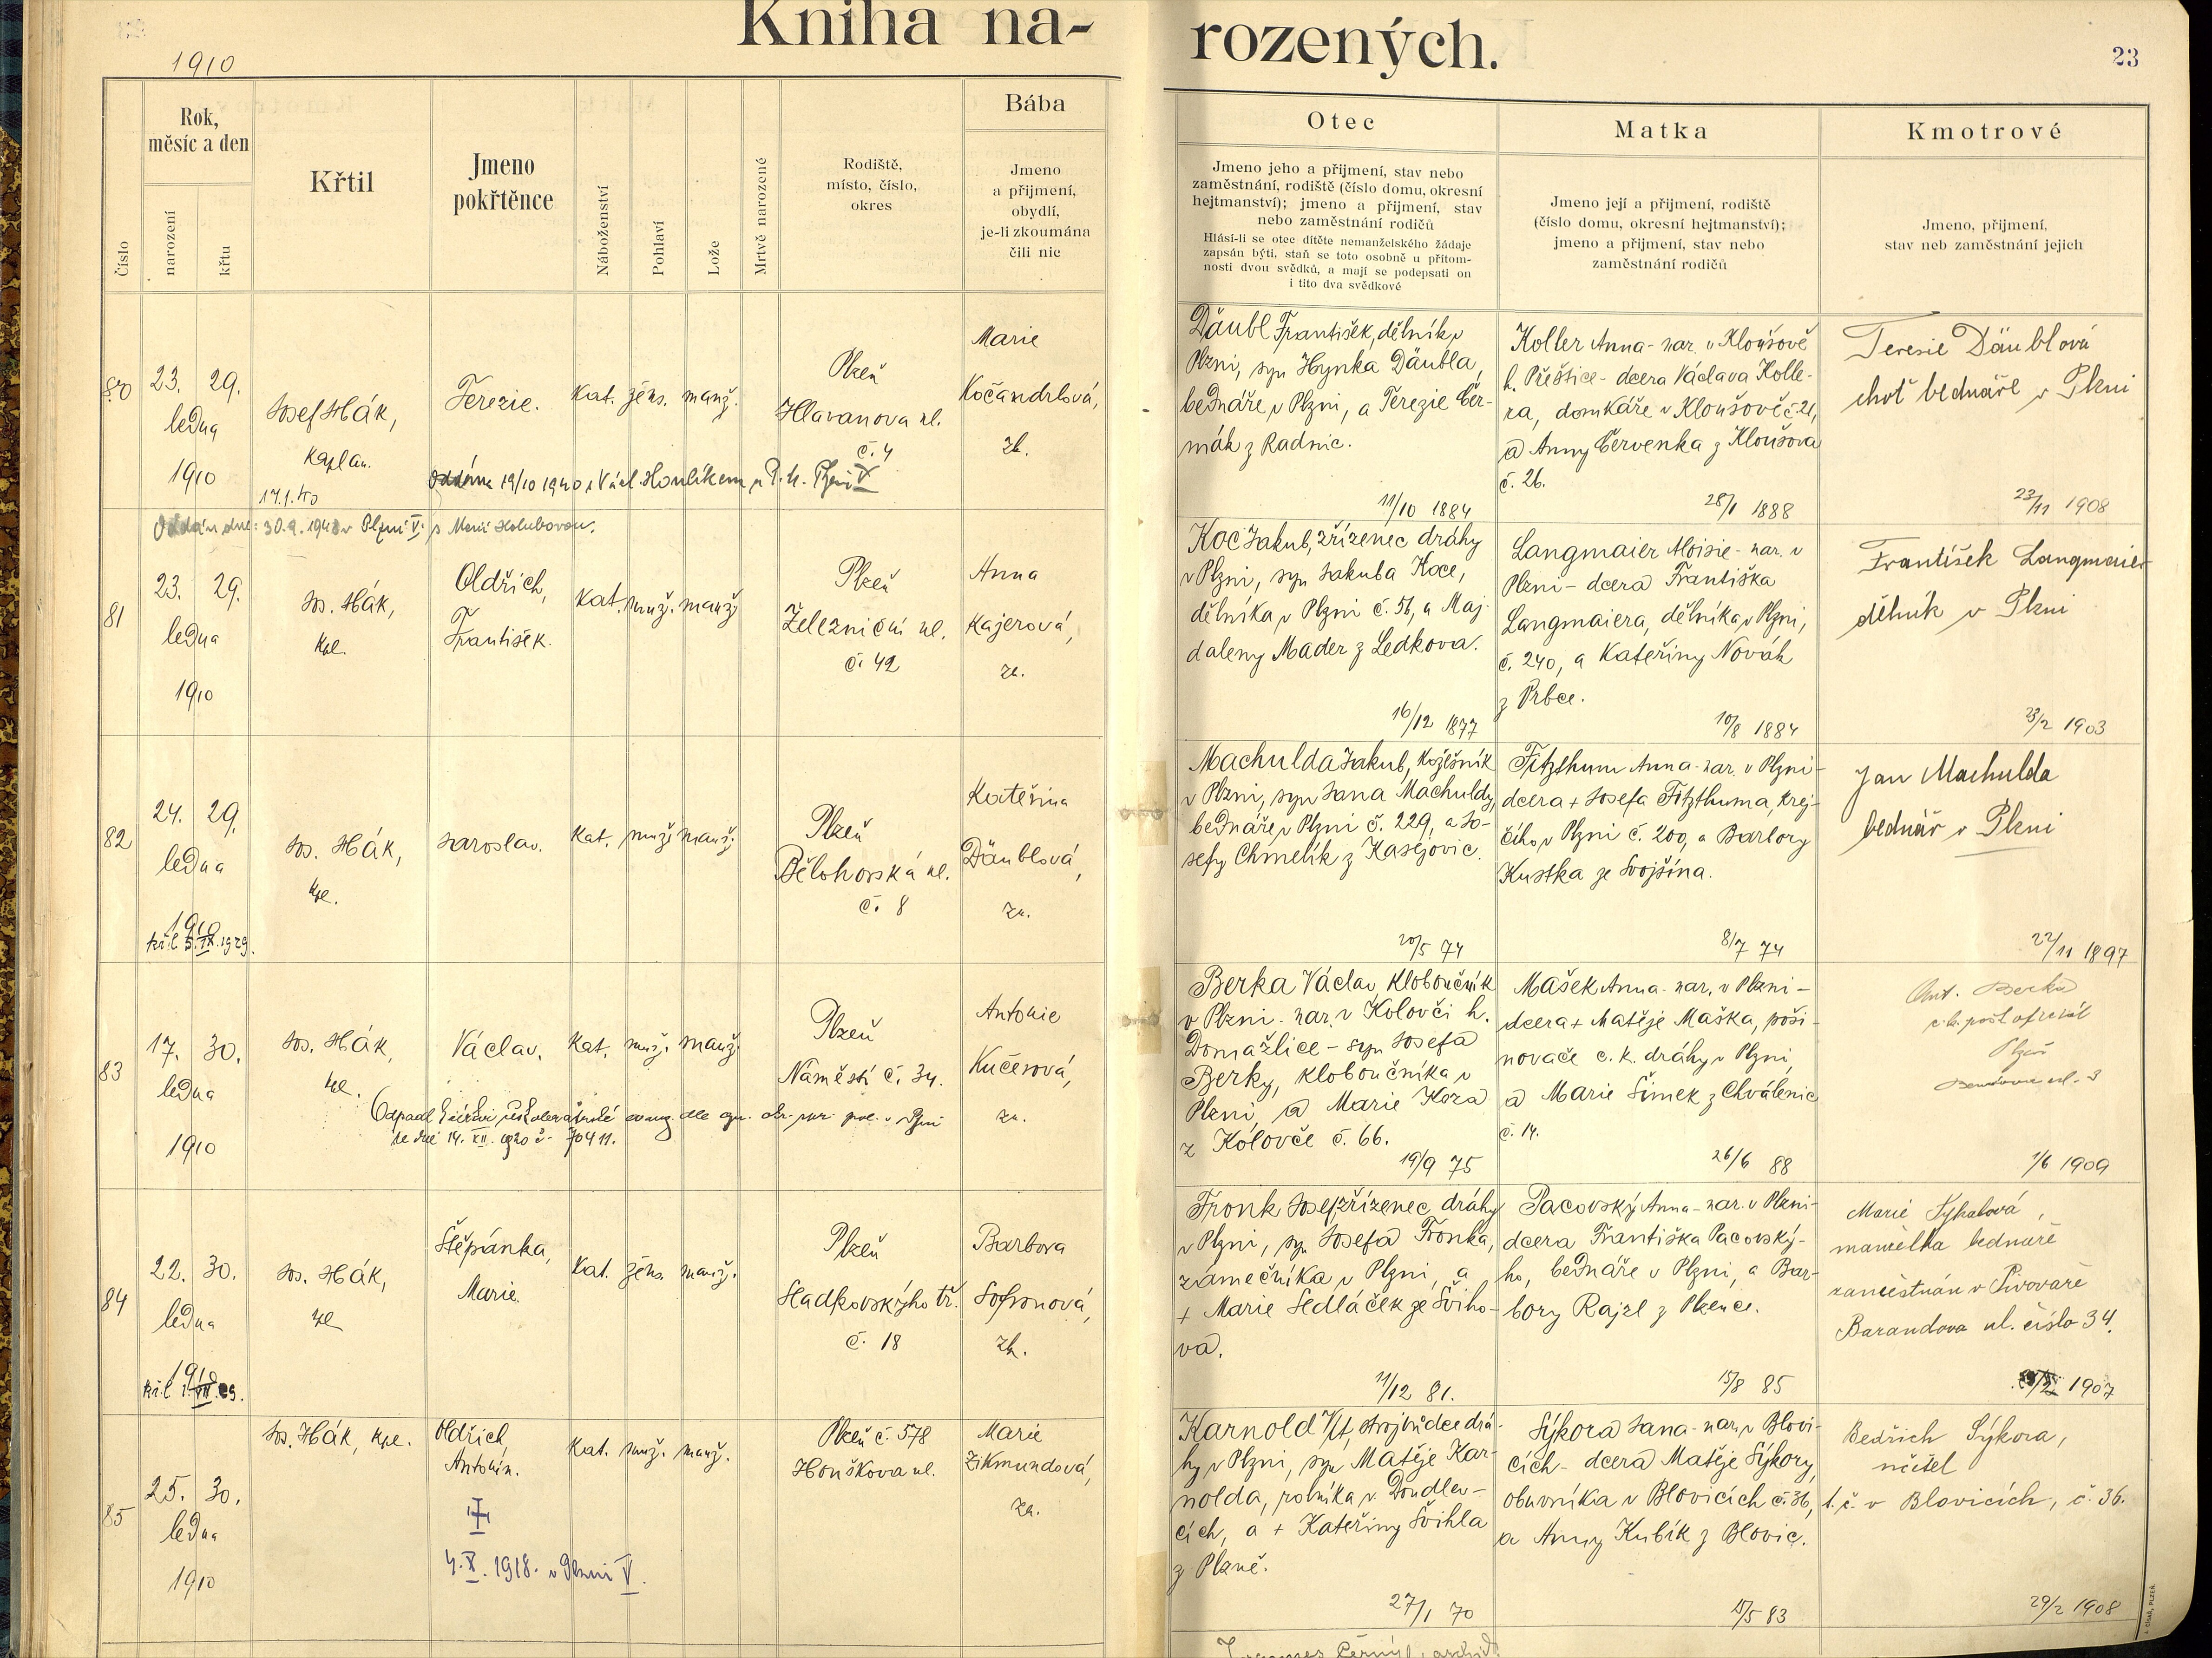 Kniha na-
rozených.
23
1910
Číslo
Rok,
měsíc a den
narození
křtu
Křtil
Jmeno
pokřtěnce
Náboženství
Pohlaví
Lože
Mrtvě narozené
Rodiště,
místo, číslo,
okres
Bába
Jmeno
a přijmení,
obydlí,
je-li zkoumána
čili nic
Otec
Jmeno jeho a přijmení, stav nebo
zaměstnání, rodiště (číslo domu, okresní
hejtmanství); jmeno a přijmení, stav
nebo zaměstnání rodičů
Hlásí-li se otec dítěte nemanželského žádaje
zapsán býti, staň se toto osobně u přítom-
nosti dvou svědků, a mají se podepsati on
i tito dva svědkové
Matka
Jmeno její a přijmení, rodiště
(číslo domu, okresní hejtmanství);
jmeno a přijmení, stav nebo
zaměstnání rodičů
Kmotrové
Jmeno, přijmení,
stav neb zaměstnání jejich
80
23. 29.
ledna
1910
Josef Hák,
kaplan.
17.1.40
Terezie.
kat. žens. manž.
Plzeň
Hlavanova ul.
č. 4
Marie
Kočandrlová,
zk.
19/10 1940 s Václ. Houlíkem u Plzni V
Däubl František, dělník v
Plzni, syn Hynka Däubla,
bednáře v Plzni, a Terezie Čer-
mák z Radnic.
11/10 1884
Koller Anna - nar. v Kloušově
h. Přeštice - dcera Václava Kolle-
ra, domkáře v Kloušově č 21,
a Anny Červenka z Kloušova
č. 26.
28/1 1888
Terezie Däublová
choť bednáře v Plzni
23/11 1908
Oddán dne: 30.9. v Plzni V. s Marií Holubovou.
81
23. 29.
ledna
1910
Jos. Hák,
kpl.
Oldřich,
František.
kat. muž. manž.
Plzeň
Železniční ul.
č. 42
Anna
Kajerová,
zk.
Koc Jakub, zřízenec dráhy
v Plzni, syn Jakuba Koce,
dělníka v Plzni č. 56, a Maj-
daleny Mader z Ledkova.
16/12 1877
Langmaier Aloisie - nar. v
Plzni - dcera Františka
Langmaiera, dělníka v Plzni,
č. 240, a Kateřiny Novák
z Vrbce.
10/8 1884
František Langmaier
dělník v Plzni
23/2 1903
82
24. 29.
ledna
1910
kř. l. 5. IX. 1929.
Jos. Hák,
kpl.
Jaroslav.
kat. muž. manž.
Plzeň
Bělohorská ul.
č. 8
Kateřina
Däublová,
zk.
Machulda Jakub, kožešník
v Plzni, syn Jana Machuldy,
bednáře v Plzni č. 229, a Jo-
sefy Chmelík z Kasejovic.
20/5 74
Fitzthum Anna - nar. v Plzni -
dcera + Josefa Fitzthuma, krej-
čího v Plzni č. 200, a Barbory
Kustka ze Svojšína.
8/7 74
Jan Machulda
bednář v Plzni
22/11 1897
83
17. 30.
ledna
1910
Jos. Hák,
kpl.
Václav.
kat. muž. manž.
Plzeň
Náměstí č. 34.
Antonie
Kučerová,
zk.
Odpadl k církvi evang. dle
ze dne 14. XII. 1920 č. 70411.
Berka Václav kloboučník
v Plzni - nar. v Kolovči h.
Domažlice - syn Josefa
Berky, kloboučníka v
Plzni, a Marie Koza
z Kolovče č. 66.
19/9 75
Mašek Anna - nar. v Plzni -
dcera + Matěje Maška, poši-
novače c. k. dráhy v Plzni,
a Marie Šimek z Chválenic
č. 14.
26/6 88
Ant. Berka
c. k. pošt. oficiál
Plzeň
ul. 3
1/6 1909
84
22. 30.
ledna
1910
Jos. Hák,
kpl
Štěpánka,
Marie.
kat. žens. manž.
Plzeň
Sladkovského tř.
č. 18
Barbora
Sofronová,
zk.
Fronk Josef zřízenec dráhy
v Plzni, syn Josefa Fronka,
zámečníka v Plzni, a
+ Marie Sedláček ze Šviho-
va.
11/12 81.
Pacovský Anna - nar. v Plzni -
dcera Františka Pacovský-
ho, bednáře v Plzni, a Bar-
bory Rajzl z Plzence.
15/8 85
Marie Sykalová,
manželka bednáře
zaměstnán v Pivovaře
Barandova ul. číslo 34.
1907
85
25. 30.
ledna
1910
Jos. Hák, kpl.
Oldřich,
Antonín.
4. X. 1918. v Plzni V.
kat. muž. manž.
Plzeň č. 578
Houškova ul.
Marie
Zikmundová,
zk.
Karnold Vít, strojvůdce drá-
hy v Plzni, syn Matěje Kar-
nolda, rolníka v Doudlev-
cích, a + Kateřiny Švihla
z Plzně.
27/1 70
Sýkora Jana - nar. v Blovi-
cích - dcera Matěje Sýkory,
obuvníka v Blovicích č. 36,
a Anny Kubík z Blovic.
15/5 83
Bedřich Sýkora,
učitel
t. č. v Blovicích, č. 36.
29/2 1908